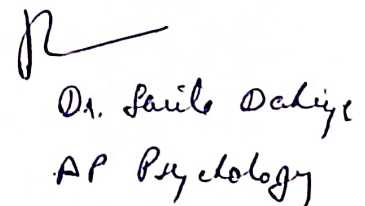 Dr. Sarita Dahiya
AP Psychology